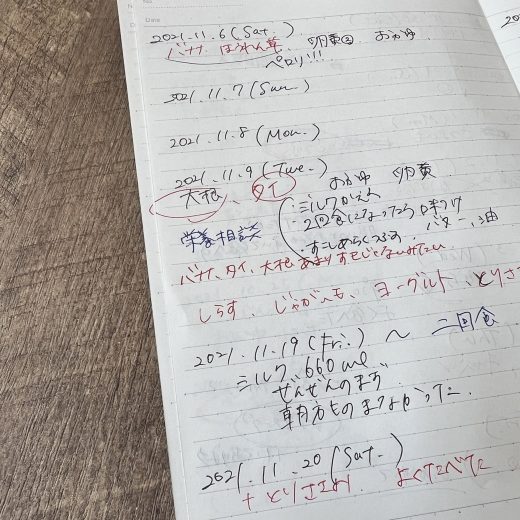 No.
Date
2021.11.6 (Sat.)
バナナ ほうれん草、卵黄② おかゆ
ペロリ!!!
2021.11.7 (Sun.)
2021.11.8 (Mon.)
2021.11.9 (Tue.)
大根、タイ おかゆ 卵黄
・ミルクがえり
栄養相談 ・2回食になったら味つけ
バター、油
・すこしあらくつぶす
バナナ、タイ、大根 あまりすきじゃないみたい
しらす、じゃがいも、ヨーグルト、とりささ
2021.11.19 (Fri.) 〜 二回食
ミルク 660ml
ぜんぜんのまず
朝方ものまなかった。
2021.11.20 (Sat.)
+ とりささみ よくたべた